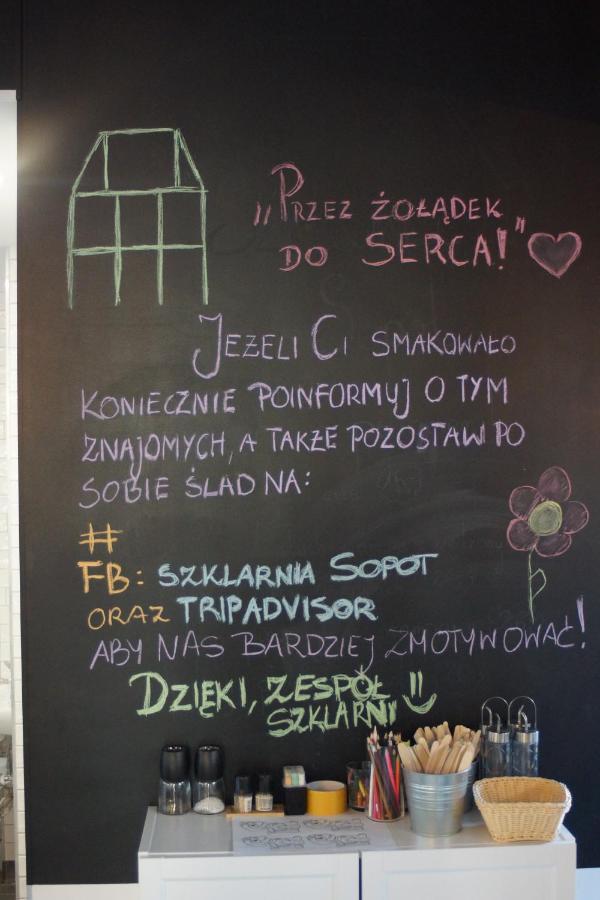 „PRZEZ ŻOŁĄDEK
DO SERCA!”
JEŻELI CI SMAKOWAŁO
KONIECZNIE POINFORMUJ O TYM
ZNAJOMYCH, A TAKŻE POZOSTAW PO
SOBIE ŚLAD NA:
#
FB: SZKLARNIA SOPOT
ORAZ TRIPADVISOR
ABY NAS BARDZIEJ ZMOTYWOWAĆ!
DZIĘKI, ZESPÓŁ
SZKLARNI